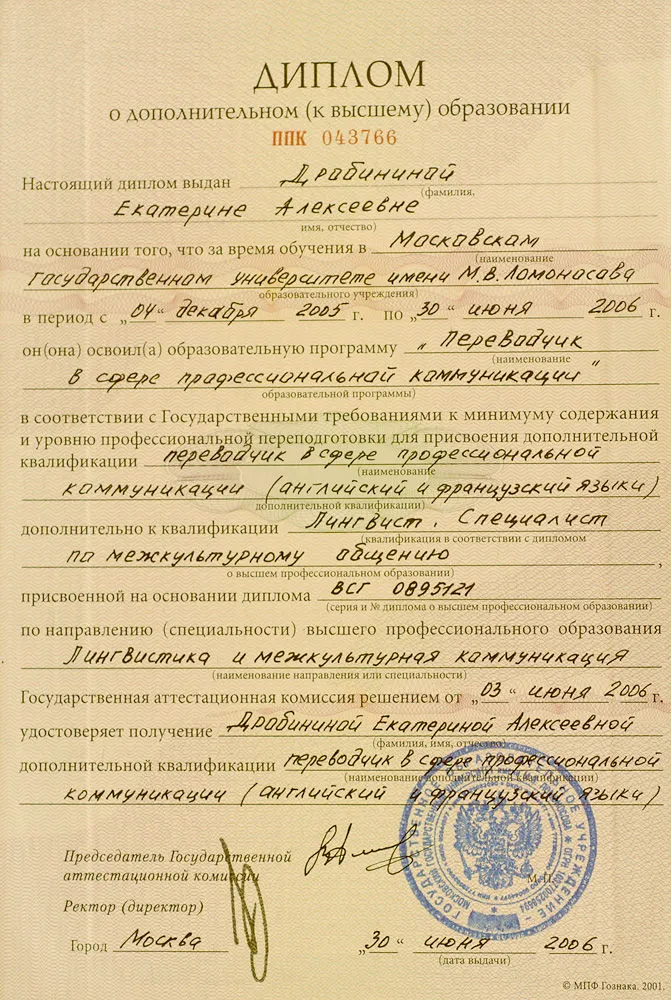 ДИПЛОМ
о дополнительном (к высшему) образовании
ППК 043766
Настоящий диплом выдан Драбининой
(фамилия,
Екатерине Алексеевне
имя, отчество)
на основании того, что за время обучения в Московском
(наименование
государственном университете имени М.В.Ломоносова
образовательного учреждения)
в период с „04“ декабря 2005 г. по „30“ июня 2006 г.
он(она) освоил(а) образовательную программу „Переводчик
(наименование
в сфере профессиональной коммуникации“
образовательной программы)
в соответствии с Государственными требованиями к минимуму содержания
и уровню профессиональной переподготовки для присвоения дополнительной
квалификации переводчик в сфере профессиональной
(наименование
коммуникации (английский и французский языки)
дополнительной квалификации)
дополнительно к квалификации Лингвист. Специалист
(квалификация в соответствии с дипломом
по межкультурному общению,
о высшем профессиональном образовании)
присвоенной на основании диплома ВСГ 0895121
(серия и № диплома о высшем профессиональном образовании)
по направлению (специальности) высшего профессионального образования
Лингвистика и межкультурная коммуникация
(наименование направления или специальности)
Государственная аттестационная комиссия решением от „03“ июня 2006 г.
удостоверяет получение Драбининой Екатериной Алексеевной
(фамилия, имя, отчество)
дополнительной квалификации переводчик в сфере профессиональной
(наименование дополнительной квалификации)
коммуникации (английский и французский языки)
Председатель Государственной
аттестационной комиссии
Ректор (директор)
М.П.
Город Москва „30“ июня 2006 г.
(дата выдачи)
© МПФ Гознака. 2001.